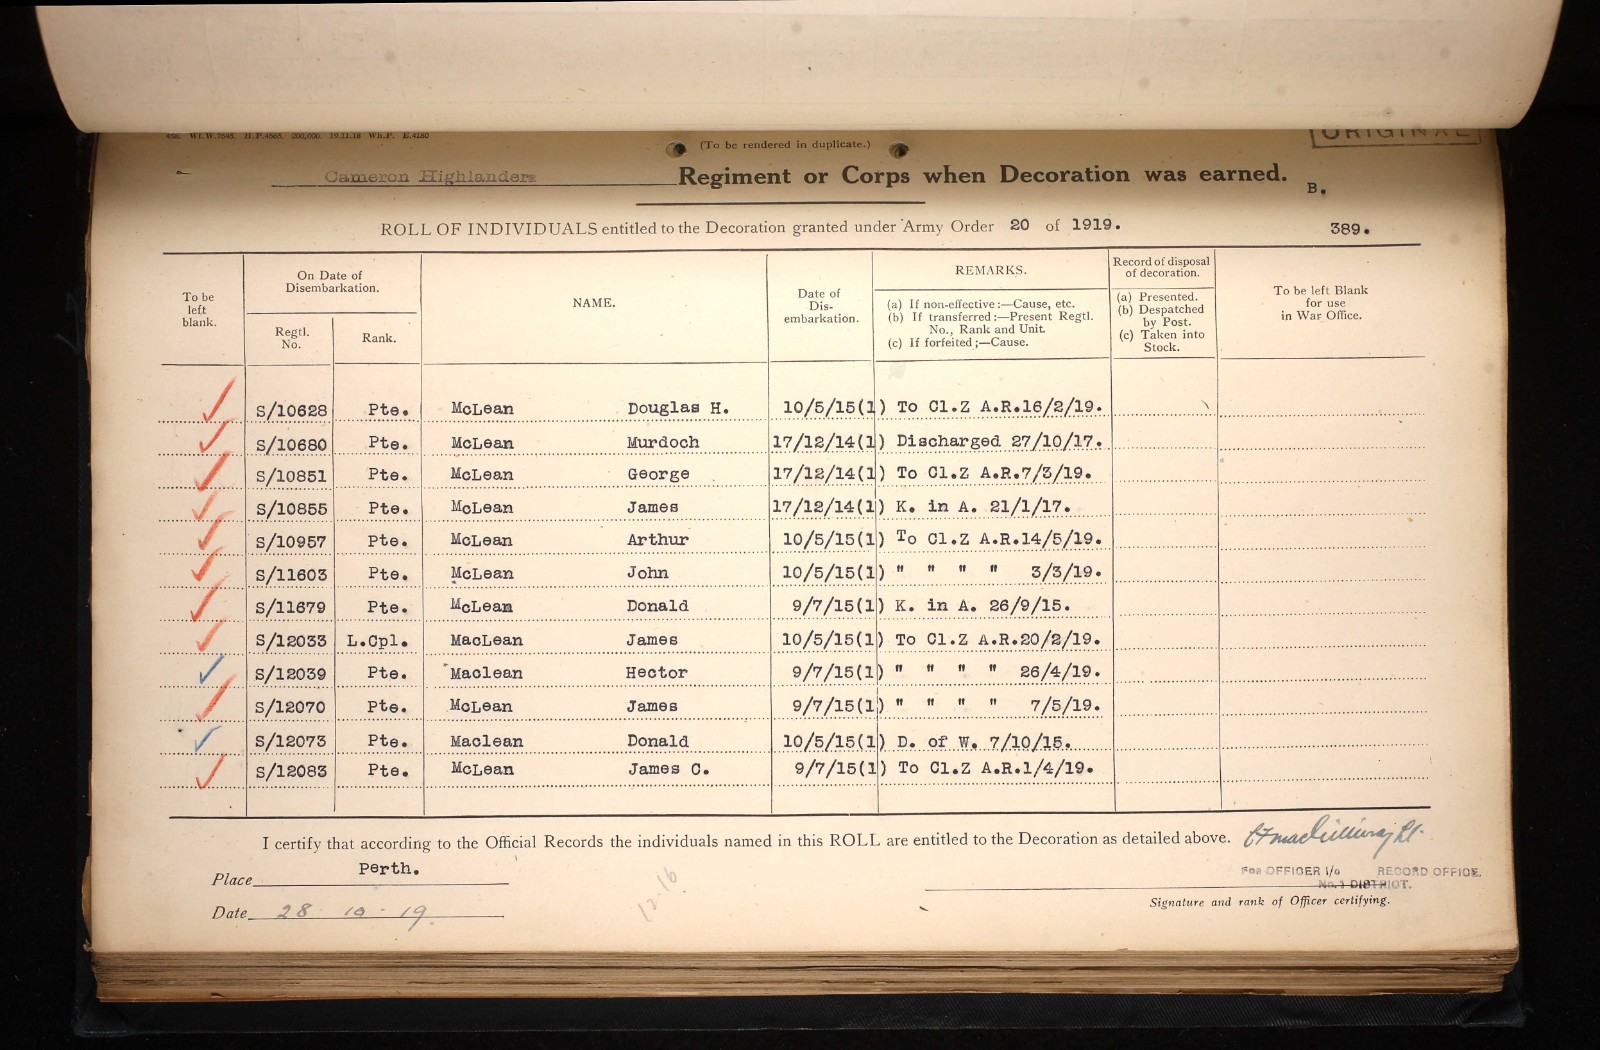 456. Wt.W.7545. H.P.4565. 200,000. 19.11.18 Wh.P. E.4180
ORIGINAL
(To be rendered in duplicate.)
Cameron Highlanders Regiment or Corps when Decoration was earned.
B.
ROLL OF INDIVIDUALS entitled to the Decoration granted under Army Order 20 of 1919.
389.
To be left blank.
On Date of Disembarkation.
Regtl. No.
Rank.
NAME.
Date of Dis-embarkation.
REMARKS.
(a) If non-effective:—Cause, etc.
(b) If transferred:—Present Regtl. No., Rank and Unit.
(c) If forfeited;—Cause.
Record of disposal of decoration.
(a) Presented.
(b) Despatched by Post.
(c) Taken into Stock.
To be left Blank for use in War Office.
S/10628 Pte. McLean Douglas H. 10/5/15(1) To Cl.Z A.R.16/2/19.
S/10680 Pte. McLean Murdoch 17/12/14(1) Discharged 27/10/17.
S/10851 Pte. McLean George 17/12/14(1) To Cl.Z A.R.7/3/19.
S/10855 Pte. McLean James 17/12/14(1) K. in A. 21/1/17.
S/10957 Pte. McLean Arthur 10/5/15(1) To Cl.Z A.R.14/5/19.
S/11603 Pte. McLean John 10/5/15(1) " " " " 3/3/19.
S/11679 Pte. McLean Donald 9/7/15(1) K. in A. 26/9/15.
S/12033 L.Cpl. MacLean James 10/5/15(1) To Cl.Z A.R.20/2/19.
S/12039 Pte. Maclean Hector 9/7/15(1) " " " " 26/4/19.
S/12070 Pte. McLean James 9/7/15(1) " " " " 7/5/19.
S/12073 Pte. Maclean Donald 10/5/15(1) D. of W. 7/10/15.
S/12083 Pte. McLean James C. 9/7/15(1) To Cl.Z A.R.1/4/19.
I certify that according to the Official Records the individuals named in this ROLL are entitled to the Decoration as detailed above.
Place Perth.
FOR OFFICER I/o RECORD OFFICE.
No. 1 DISTRICT.
Date 28-10-19
12-16
Signature and rank of Officer certifying.